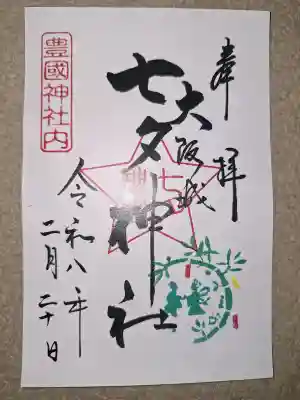 奉拝
大阪城
七夕神社
豊國神社内
令和八年
二月二十日